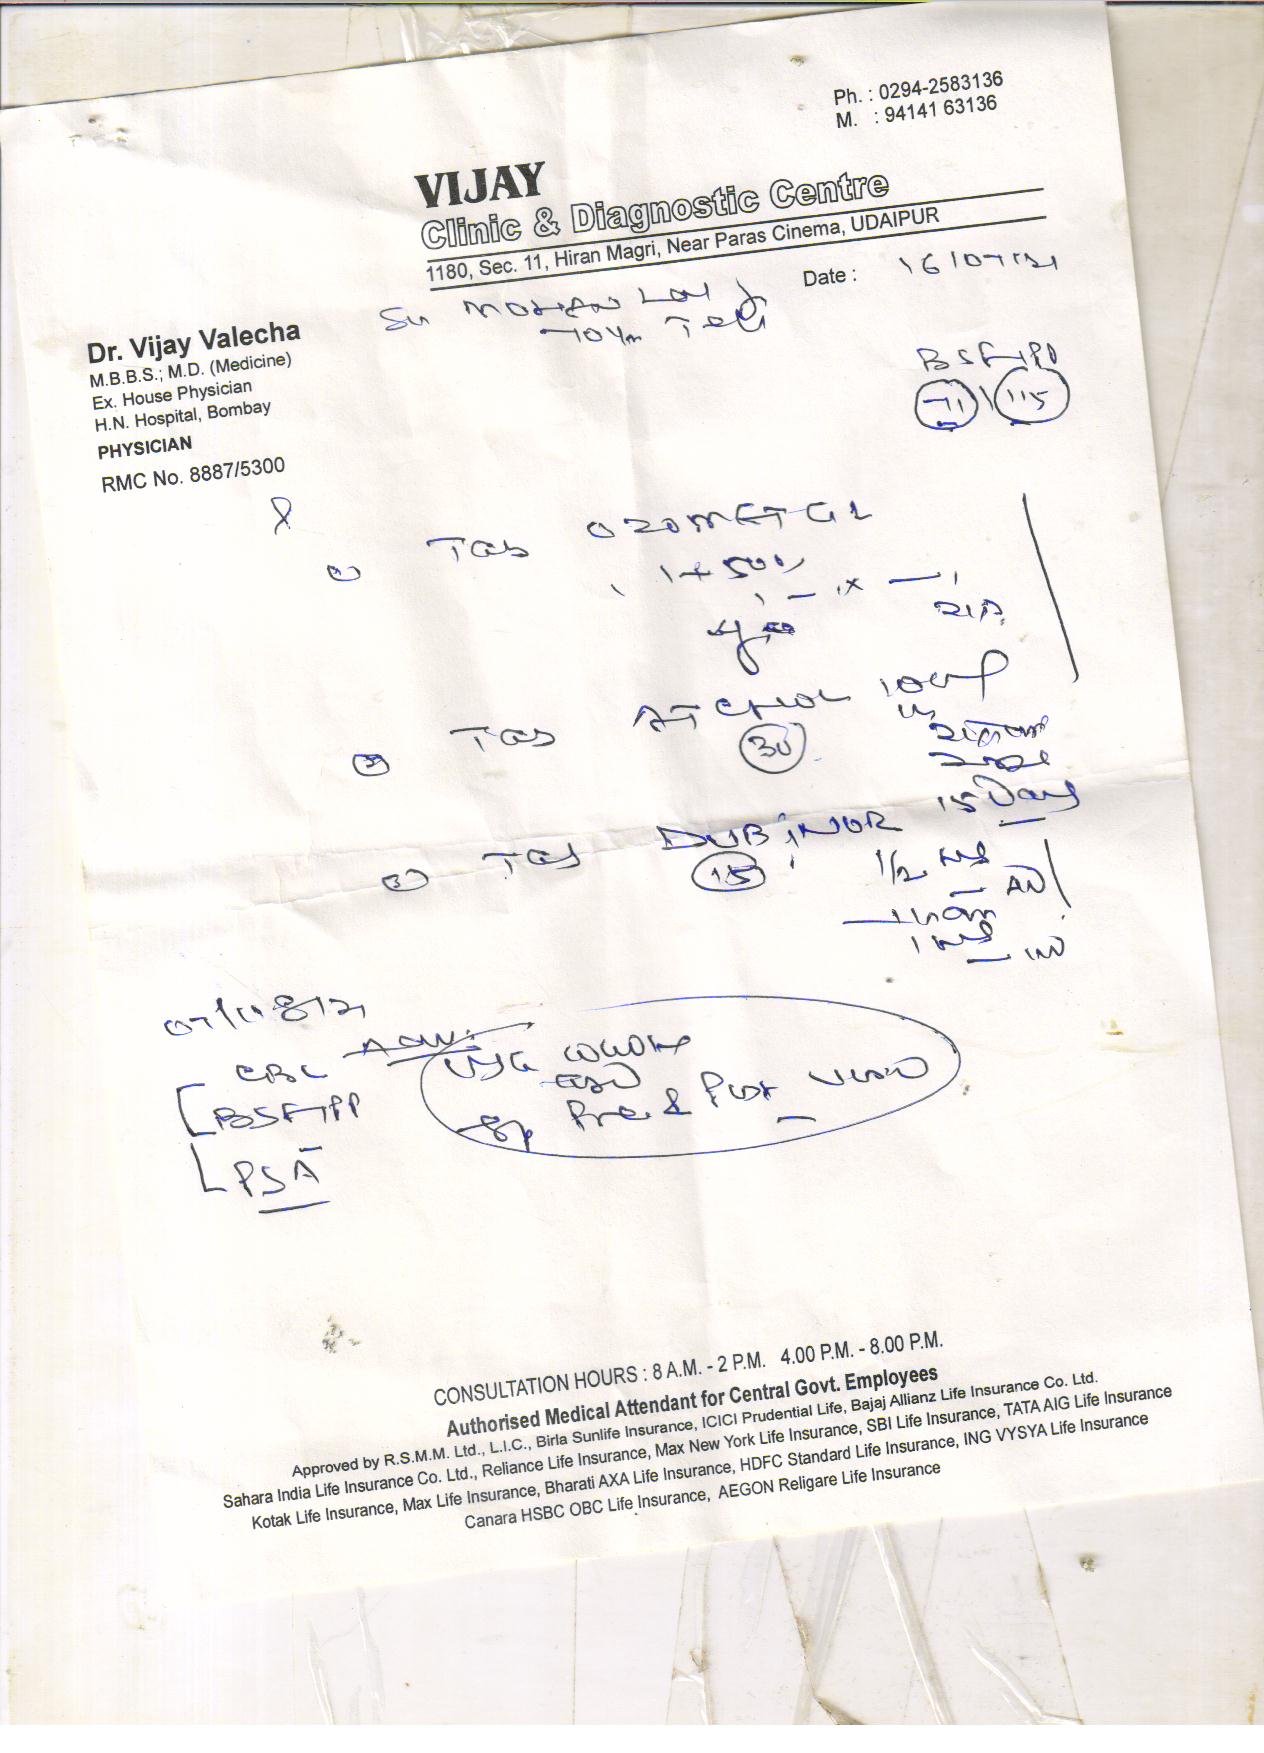 Ph. : 0294-2583136
M. : 94141 63136
VIJAY
Clinic & Diagnostic Centre
1180, Sec. 11, Hiran Magri, Near Paras Cinema, UDAIPUR
Date : 16/07/21
MOHAN LAL
70
Dr. Vijay Valecha
M.B.B.S.; M.D. (Medicine)
Ex. House Physician
H.N. Hospital, Bombay
PHYSICIAN
RMC No. 8887/5300
BSF/PP
71 \ 115
① Tab OZOMET G1
② Tab ATCHOL 10
30
15 Days
③ Tab DUBINOR
15 1/2
07/08/21
CBC
BSF/PP
Pre & Post Void
PSA
CONSULTATION HOURS : 8 A.M. - 2 P.M. 4.00 P.M. - 8.00 P.M.
Authorised Medical Attendant for Central Govt. Employees
Approved by R.S.M.M. Ltd., L.I.C., Birla Sunlife Insurance, ICICI Prudential Life, Bajaj Allianz Life Insurance Co. Ltd.
Sahara India Life Insurance Co. Ltd., Reliance Life Insurance, Max New York Life Insurance, SBI Life Insurance, TATA AIG Life Insurance
Kotak Life Insurance, Max Life Insurance, Bharati AXA Life Insurance, HDFC Standard Life Insurance, ING VYSYA Life Insurance
Canara HSBC OBC Life Insurance, AEGON Religare Life Insurance